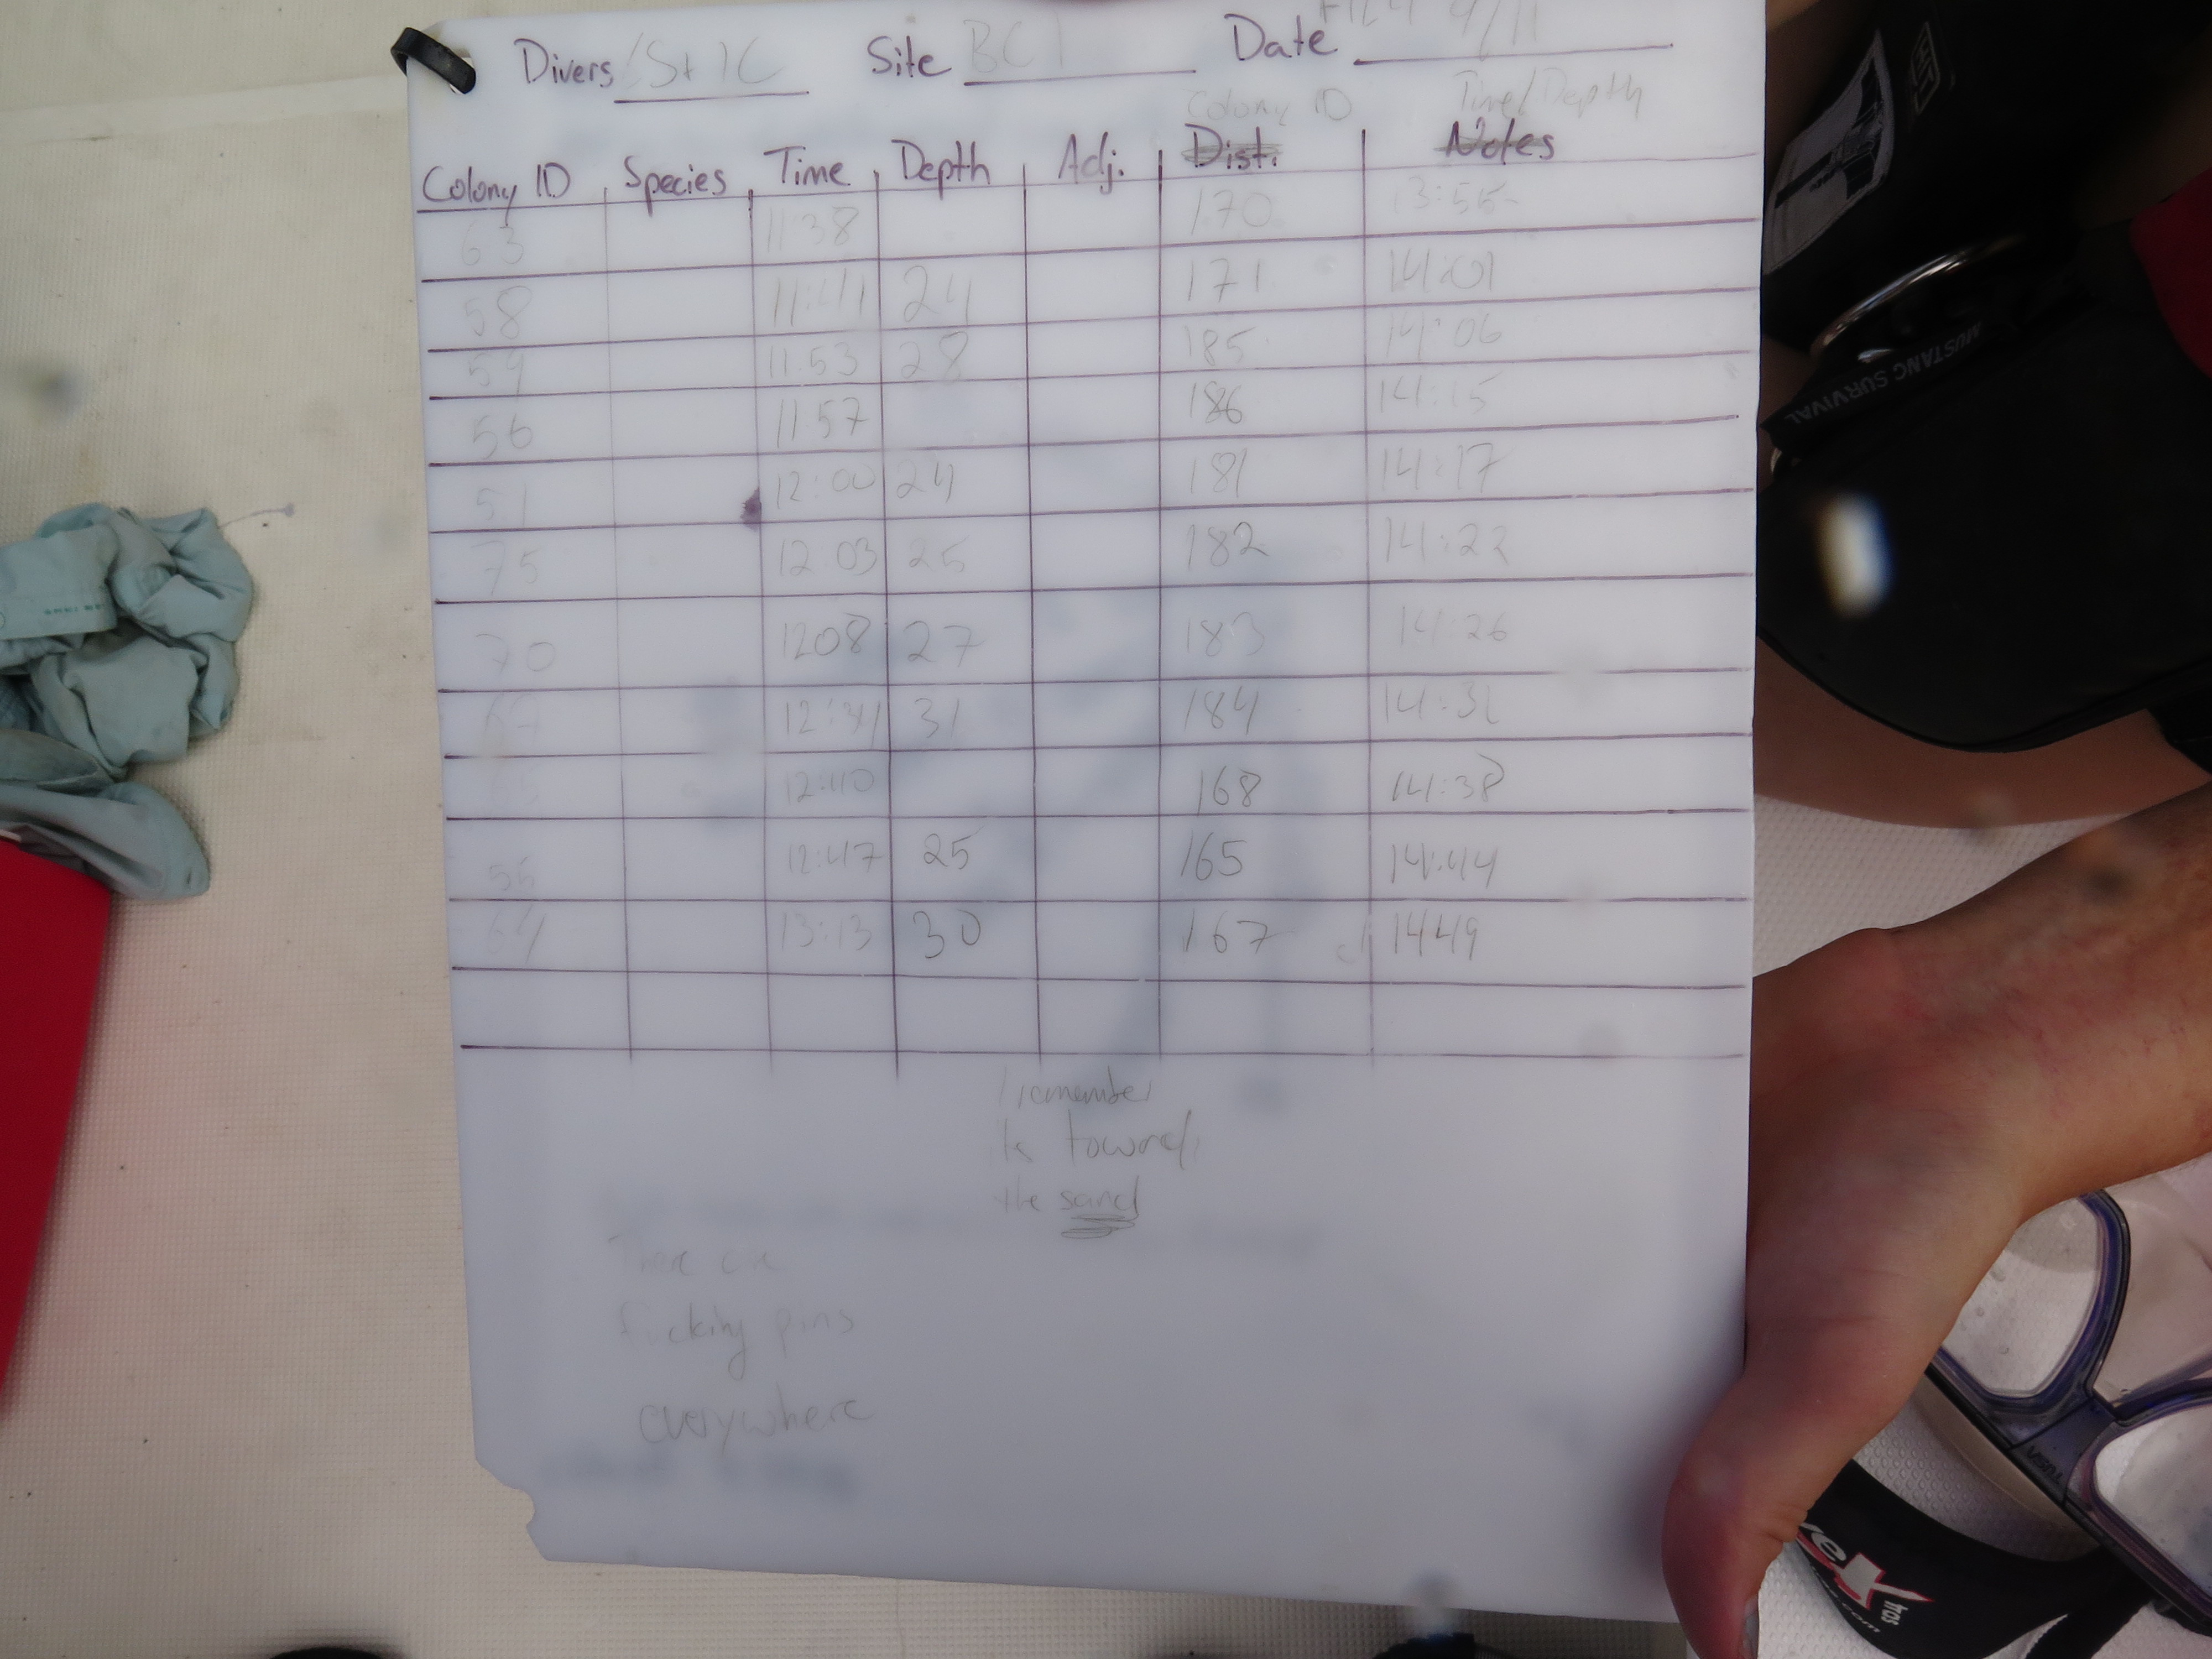 Divers Site BC1 Date 9/11
Colony ID Time/Depth
Colony ID Species Time Depth Adj. Dist. Notes
63 11:38 170 13:55
58 11:41 24 171 14:01
59 11:53 28 185 14:06
56 11 57 186 14:15
51 12:00 24 181 14:17
75 12 03 25 182 14:22
70 1208 27 183 14:26
12:34 31 184 14:31
12:40 168 14:38
12:47 25 165 14:44
13:13 30 167 1449
I remember
its towards
the sand
There are
fucking pins
everywhere
MUSTANG SURVIVAL
TUSA